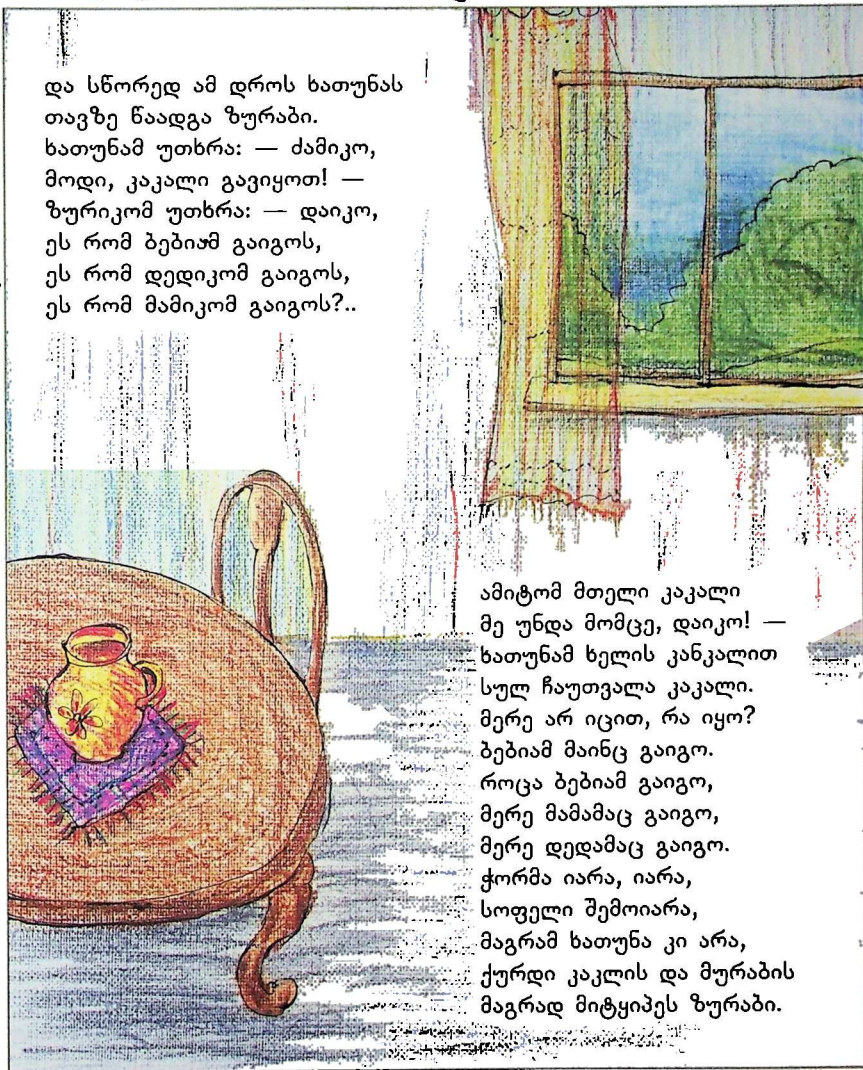 და სწორედ ამ დროს ხათუნას
თავზე წაადგა ზურაბი.
ხათუნამ უთხრა: — ძამიკო,
მოდი, კაკალი გავიყოთ! —
ზურიკომ უთხრა: — დაიკო,
ეს რომ ბებიამ გაიგოს,
ეს რომ დედიკომ გაიგოს,
ეს რომ მამიკომ გაიგოს?..
ამიტომ მთელი კაკალი
მე უნდა მომცე, დაიკო! —
ხათუნამ ხელის კანკალით
სულ ჩაუთვალა კაკალი.
მერე არ იცით, რა იყო?
ბებიამ მაინც გაიგო.
როცა ბებიამ გაიგო,
მერე მამამაც გაიგო,
მერე დედამაც გაიგო.
ჭორმა იარა, იარა,
სოფელი შემოიარა,
მაგრამ ხათუნა კი არა,
ქურდი კაკლის და მურაბის
მაგრად მიტყიპეს ზურაბი.